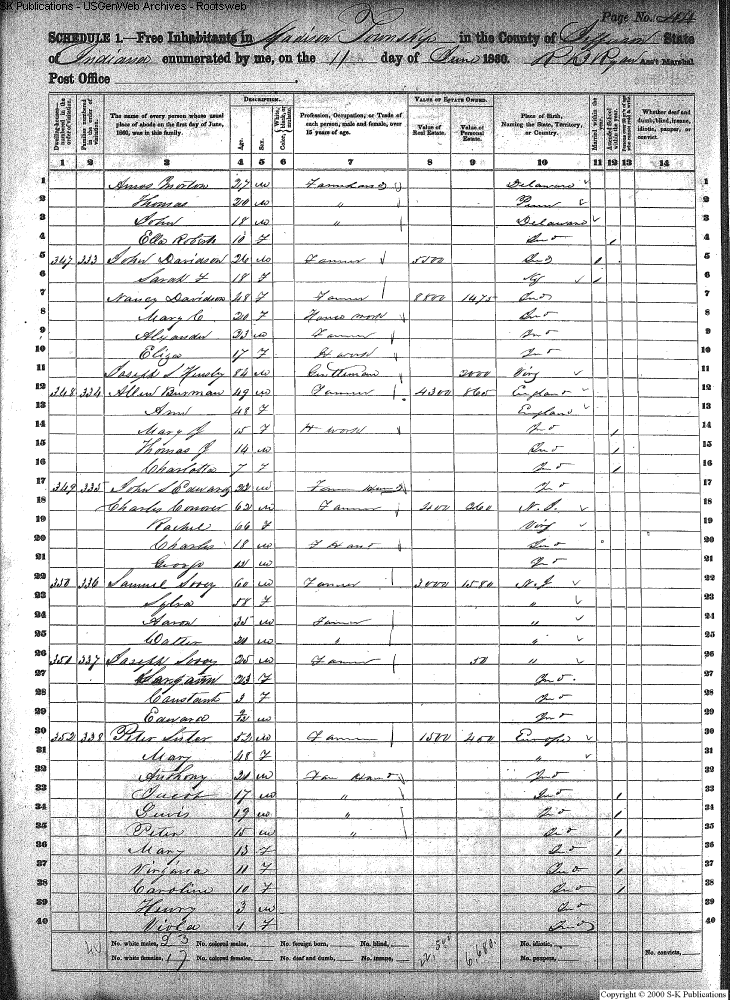 S-K Publications - USGenWeb Archives - Rootsweb
Page No.
SCHEDULE 1.—Free Inhabitants in Madison Township in the County of Jefferson State
of Indiana enumerated by me, on the 11 day of June 1860. Ryan Ass't Marshal
Post Office
DESCRIPTION. VALUE OF ESTATE OWNED.
Dwelling-houses—numbered in the order of visitation. Families numbered in the order of visitation. The name of every person whose usual place of abode on the first day of June, 1860, was in this family. Age. Sex. Color, White, black, or mulatto. Profession, Occupation, or Trade of each person, male and female, over 15 years of age. Value of Real Estate. Value of Personal Estate. Place of Birth, Naming the State, Territory, or Country. Married within the year. Attended School within the year. Whether deaf and dumb, blind, insane, idiotic, pauper, or convict.
1 2 3 4 5 6 7 8 9 10 11 12 13 14
1 Amos Morton 27 m Farmhand Delaware 1
2 Thomas 20 m " Penn 2
3 John 18 m " Delaware 3
4 Ella 10 f Ind 4
5 347 333 John Davidson 26 m Farmer 5500 Ind 5
6 Sarah F 18 f Ky 6
7 Nancy Davidson 48 f Farmer 8800 1475 Ind 7
8 Mary C 20 f House work Ind 8
9 Alexander 23 m Farmer Ind 9
10 Eliza 17 f H work Ind 10
11 Joseph S 84 m Gentleman 2000 Virg 11
12 348 334 Allen Burman 49 m Farmer 4300 865 England 12
13 Ann 48 f England 13
14 Mary J 15 f H work Ind 14
15 Thomas J 14 m Ind 15
16 Charlotta 7 f Ind 16
17 349 335 John S Edwards 22 m Farm Hand Ind 17
18 Charles Conover 62 m Farmer 400 260 N.J. 18
19 Rachel 66 f Virg 19
20 Charles 18 m F Hand Ind 20
21 George 12 m Ind 21
22 350 336 Samuel 60 m Farmer 3000 1580 N.J 22
23 Sylva 58 f " 23
24 Aaron 35 m Farmer " 24
25 Walter 20 m " " 25
26 351 337 Joseph 25 m Farmer 50 " 26
27 23 f Ind 27
28 Constant 3 f Ind 28
29 Edward m Ind 29
30 352 338 Peter Sister 52 m Farmer 1500 400 Europe 30
31 Mary 48 f " 31
32 Anthony 20 m Farm Hand Ind 32
33 Jacob 17 m " Ind 33
34 Lewis 19 m " Ind 34
35 Peter 15 m " Ind 35
36 Mary 13 f Ind 36
37 Virginia 11 f Ind 37
38 Caroline 10 f Ind 38
39 Henry 3 m Ind 39
40 Viola 1 f Ind 40
No. white males, 23 No. colored males, No. foreign born, No. blind, No. idiotic, No. convicts,
No. white females, 17 No. colored females, No. deaf and dumb, No. insane, 6,680 No. paupers,
Copyright © 2000 S-K Publications